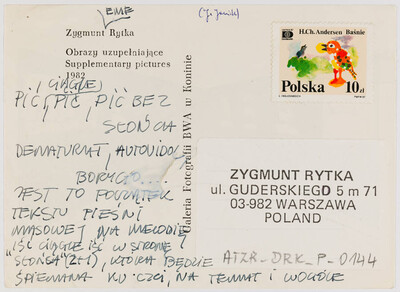 Zygmunt Rytka
Obrazy uzupełniające
Supplementary pictures
1982
I (CIĄGLE)
PIĆ, PIĆ, PIĆ BEZ
SŁOŃCA
DENATURAT, AUTOVIDOL
BORYGO...
JEST TO POCZĄTEK
TEKSTU PIEŚNI
MASOWEJ (NA MELODIĘ
"IŚĆ CIĄGLE IŚĆ W STRONĘ
SŁOŃCA" (2+1), KTÓRA BĘDZIE
ŚPIEWANA KU CZCI, NA TEMAT I WOGÓLE
Galeria Fotografii BWA w Koninie
H.Ch. Andersen Baśnie
Polska 10zł
ZYGMUNT RYTKA
ul. GUDERSKIEGO 5 m 71
03-982 WARSZAWA
POLAND
ATZR_DRK_P_0144